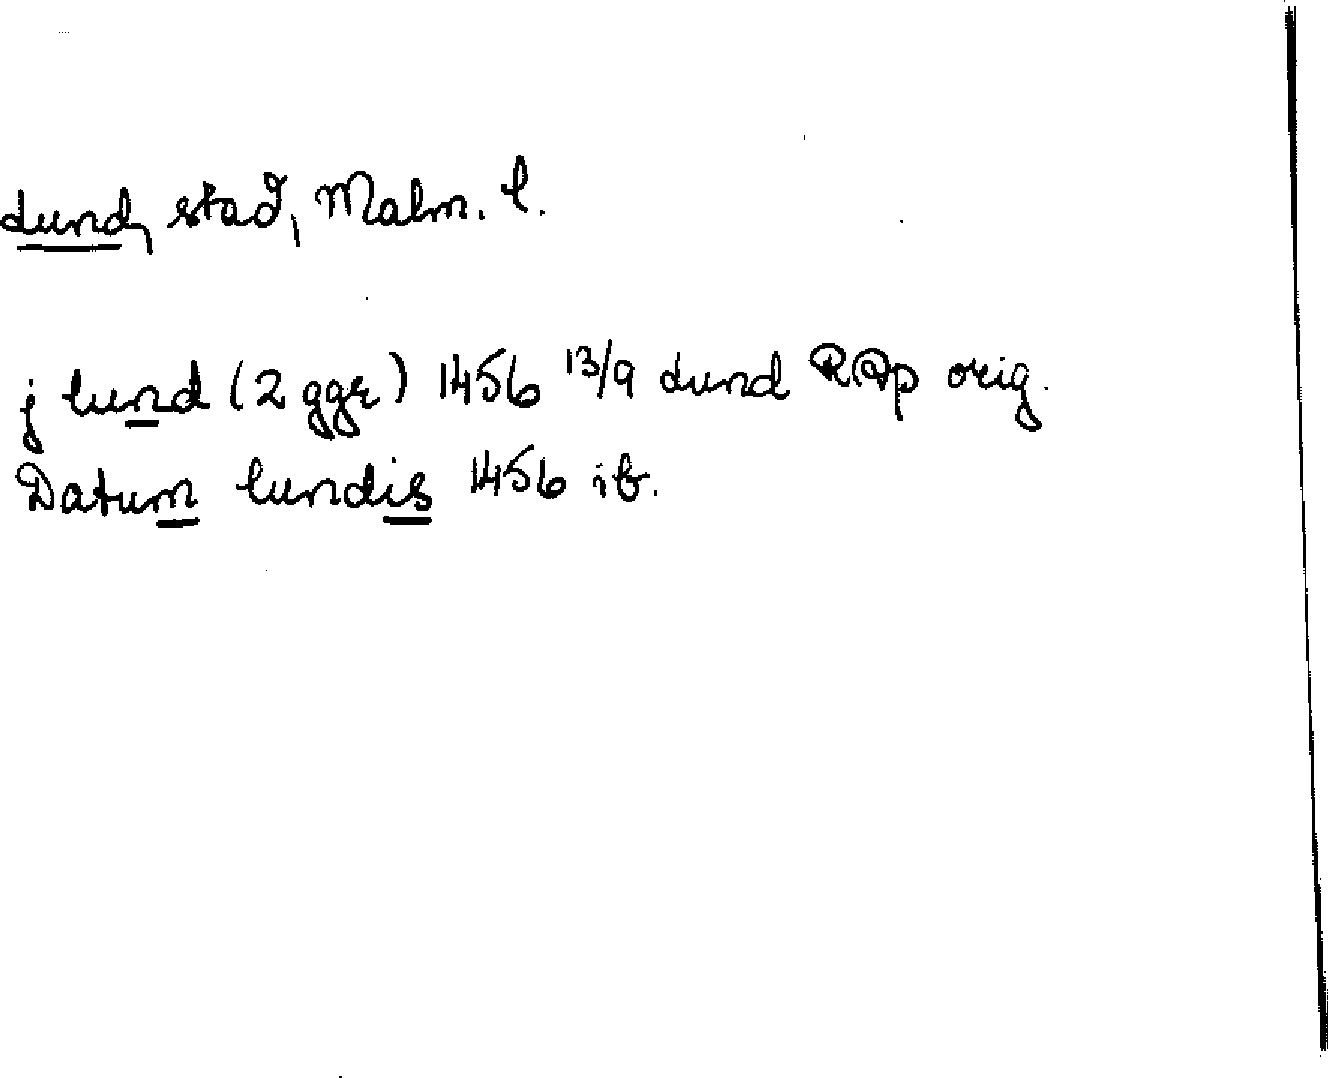 Lund, stad, Malm. l.
j lund (2 ggr) 1456 13/9 Lund RAp orig.
Datum lundis 1456 ib.